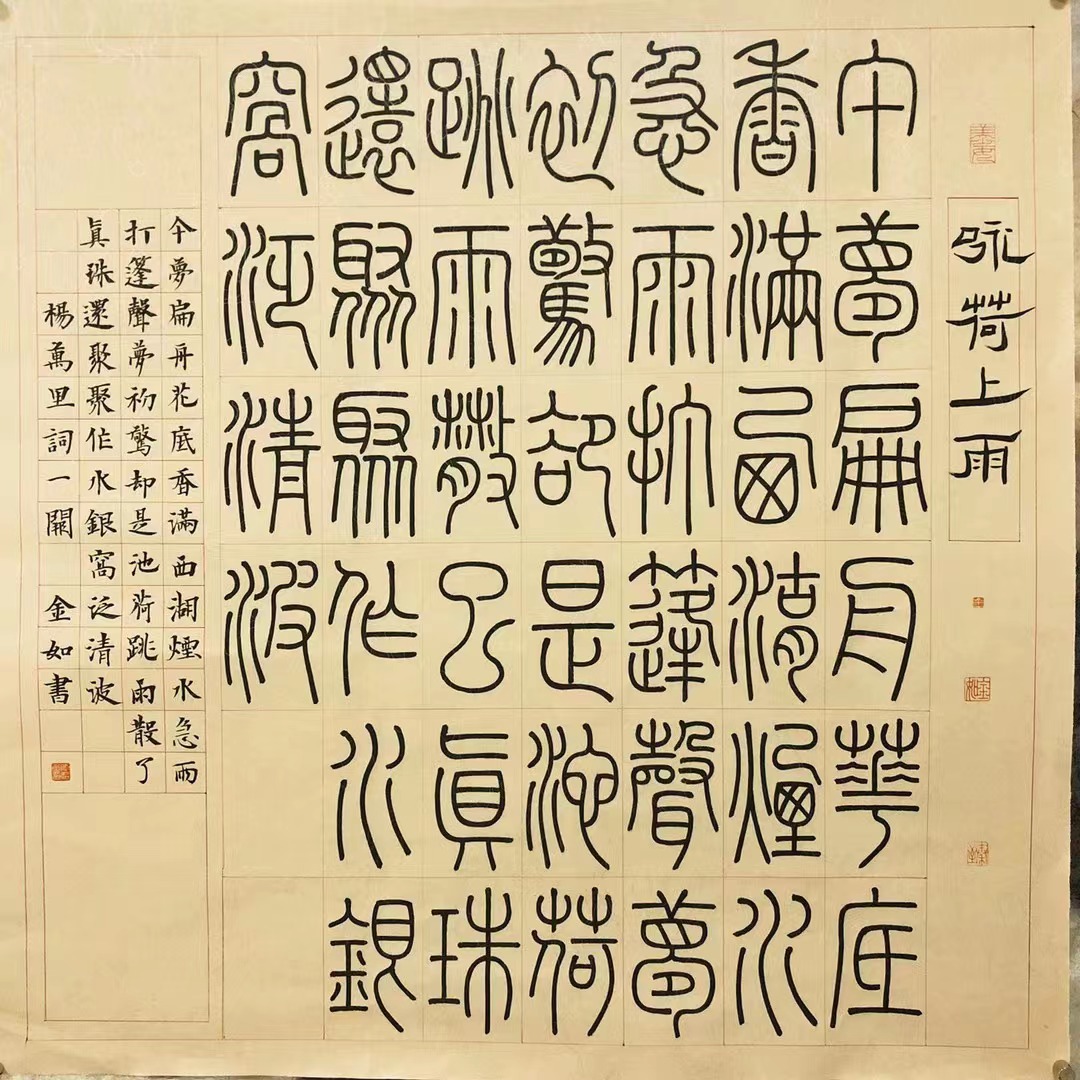 咏荷上雨
午夢扁舟華底
香滿西湖煙水
急雨打蓬聲夢
初驚卻是池荷
跳雨散了眞珠
還聚聚作水銀
窩泛清波
午夢扁舟花底香滿西湖煙水急雨
打篷聲夢初驚却是池荷跳雨散了
眞珠還聚聚作水銀窩泛清波
楊萬里詞一闋 金如書